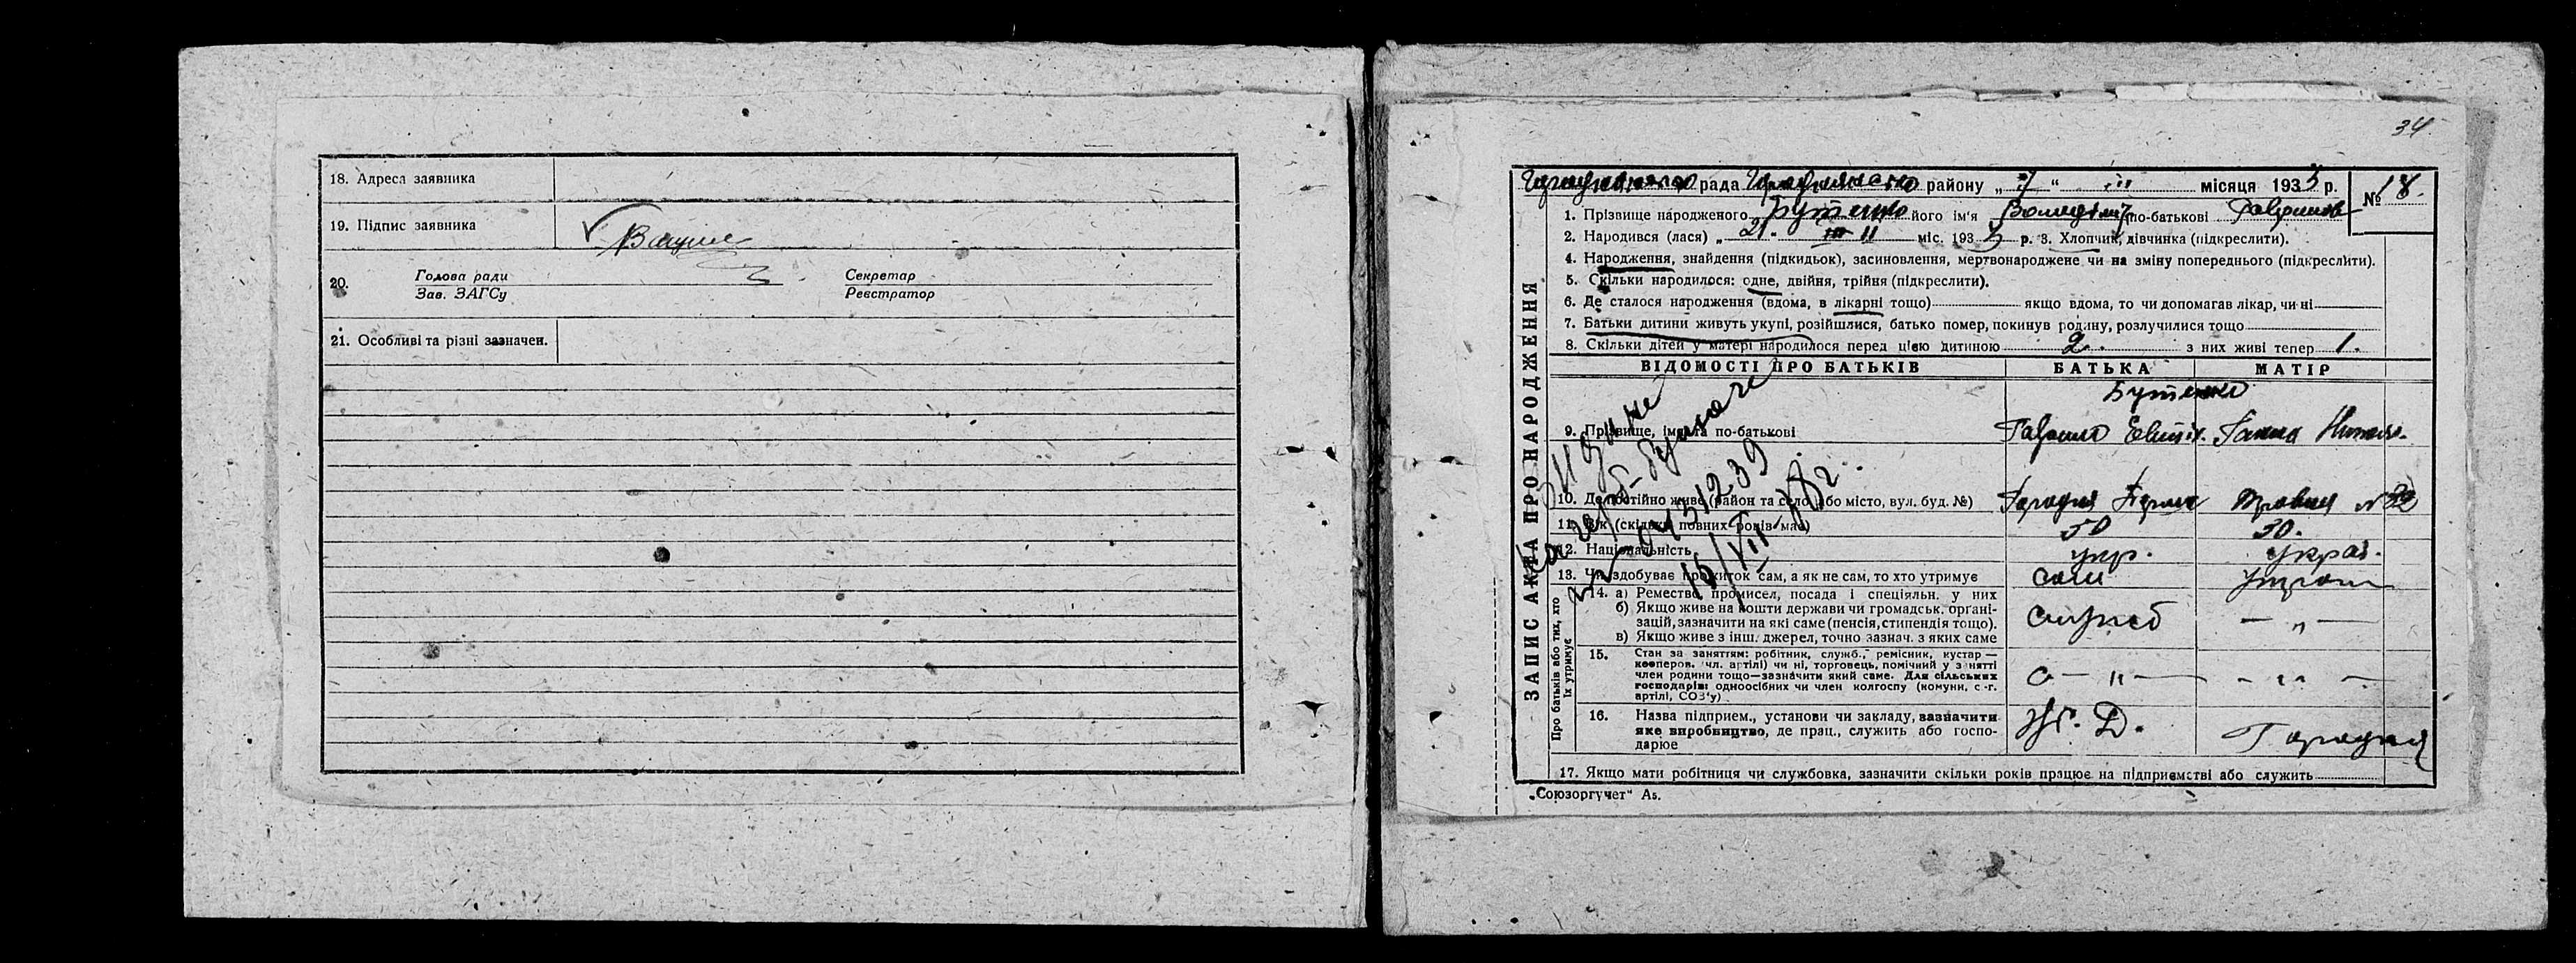 18. Адреса заявника
19. Підпис заявника
20. Голова ради Секретар
Зав. ЗАГСу Реєстратор
21. Особливі та різні зазначен.
34
рада району „ 7 “ III місяця 1935 р. № 18
1. Прізвище народженого Бутенко його ім'я Володімір по-батькові Гаврилов
2. Народився (лася) „ 21. II міс. 1935 р. 3. Хлопчик, дівчинка (підкреслити).
4. Народження, знайдення (підкидьок), засиновлення, мертвонароджене чи на зміну попереднього (підкреслити).
5. Скільки народилося: одне, двійня, трійня (підкреслити).
6. Де сталося народження (вдома, в лікарні тощо) якщо вдома, то чи допомагав лікар, чи ні
7. Батьки дитини живуть укупі, розійшлися, батько помер, покинув родину, розлучилися тощо
8. Скільки дітей у матері народилося перед цією дитиною 2. з них живі тепер 1.
ЗАПИС АКТА ПРО НАРОДЖЕННЯ
ВІДОМОСТІ ПРО БАТЬКІВ БАТЬКА МАТІР
Бутенко
9. Прізвище, ім'я та по-батькові Гаврило Ганна
10. Де постійно живе (район та село, або місто, вул. буд. №) Городня №32
11. Вік (скільки повних років має) 50 30.
12. Національність укр. украї.
13. Чи здобуває прожиток сам, а як не сам, то хто утримує сам утрим
Про батьків або тих, хто їх утримує
14. а) Ремество, промисел, посада і спеціяльн. у них
б) Якщо живе на кошти держави чи громадськ. органі-
зацій, зазначити на які саме (пенсія, стипендія тощо). службо — „ —
в) Якщо живе з інш. джерел, точно зазнач. з яких саме
15. Стан за заняттям: робітник, служб., ремісник, кустар —
кооперов. чл. артілі) чи ні, торговець, помічний у занятті
член родини тощо—зазначити який саме. Для сільських
господарів: одноосібних чи член колгоспу (комуни, с.-г.
артілі, СОЗ'у)
16. Назва підприєм., установи чи закладу, зазначити
яке виробництво, де прац., служить або госпо-
дарює Ж. Д. Городня
17. Якщо мати робітниця чи службовка, зазначити скільки років працює на підприємстві або служить
„Союзоргучет“ А5.